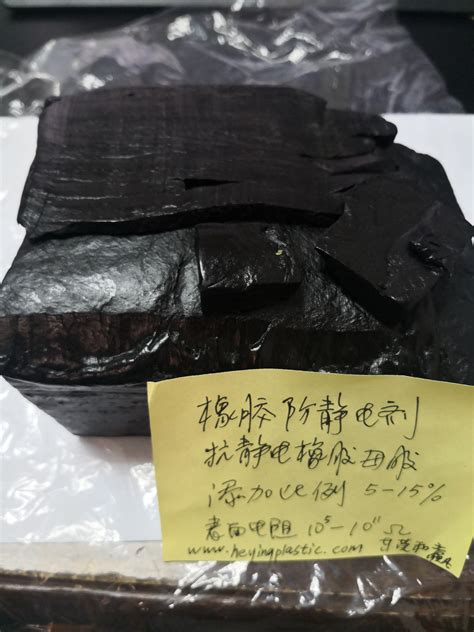 橡胶防静电剂
抗静电橡胶母胶
添加比例 5-15%
表面电阻 10⁵-10¹¹ Ω
www.heyingplastic.com